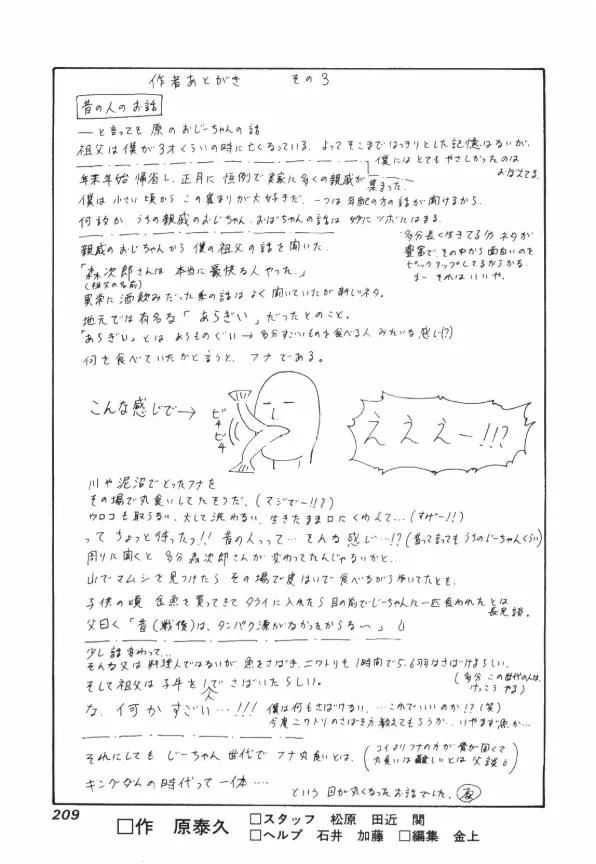 作者あとがき その3
昔の人のお話
――と言っても 原のおじーちゃんの話
祖父は僕が3才くらいの時に亡くなっている。よってそこまではっきりとした記憶はないが、
僕にはとてもやさしかったのは
おぼえてる。
年末年始 帰省し、正月に 恒例で実家に多くの親戚が
集まった。
僕は 小さい頃から この集まりが大好きだ。一つは年配の方の話が聞けるから。
何故か、うちの親戚のおじちゃん、おばちゃんの話は 妙にツボにはまる。
多分長く生きてる分 ネタが
豊富で、その中から面白いのを
ピックアップしてるからかな。
まー それはいいや。
親戚のおじちゃんから 僕の祖父の話を聞いた。
「森次郎さんは 本当に豪快な人やった。」
(祖父の名前)
異常に酒飲みだった系の話はよく聞いていたが新しいネタ。
地元では有名な「あらぎい」だったとのこと。
「あらぎい」とは あらものぐい→多分すごいものを食べる人 みたいな感じ(?)
何を食べていたかと言うと、フナである。
こんな感じで→
ビチ
ビチ
えええー!!?
川や泥沼でとったフナを
その場で丸食いしてたそうだ。(マジでー!!?)
ウロコも取らない、大して洗わない、生きたまま口にくわえて…(すげー!!)
って ちょっと待ったァ!! 昔の人って… そんな感じ…!?(昔って言ってもうちのじーちゃんくらい)
周りに聞くと 多分森次郎さんが 変わってたんじゃないかと…
山でマムシを見つけたら その場で皮はいで 食べながら歩いてたとも。
子供の頃 金魚を買ってきて タライに入れたら 目の前でじーちゃんに一匹食われたとは
長兄談。
父曰く「昔(戦後)は、タンパク源がなかったからな〜」
少し話変わって…
そんな父は 料理人ではないが 魚をさばき、ニワトリも1時間で5,6羽はさばけるらしい。
そして祖父は 子牛を1人でさばいたらしい。
(多分 この世代の人は、
けっこう やる)
な、何かすごい…!!! 僕は何もさばけない、…これでいいのか!?(笑)
今度ニワトリのさばき方教えてもらうか、いやまず魚か…
それにしても じーちゃん世代で フナ丸食いとは、
(コイよりフナの方が骨が固くて
丸食いは難しいとは 父談)
キングダムの時代って一体‥‥
という 目が丸くなったお話でした。
209
□作 原泰久
□スタッフ 松原 田近 関
□ヘルプ 石井 加藤 □編集 金上